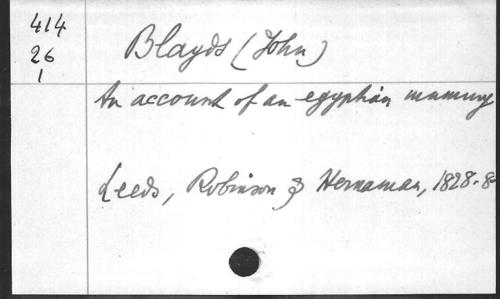 414
26
1
Blayds (John)
An account of an egyptian mummy
Leeds, Robinson & Hernaman, 1828.8